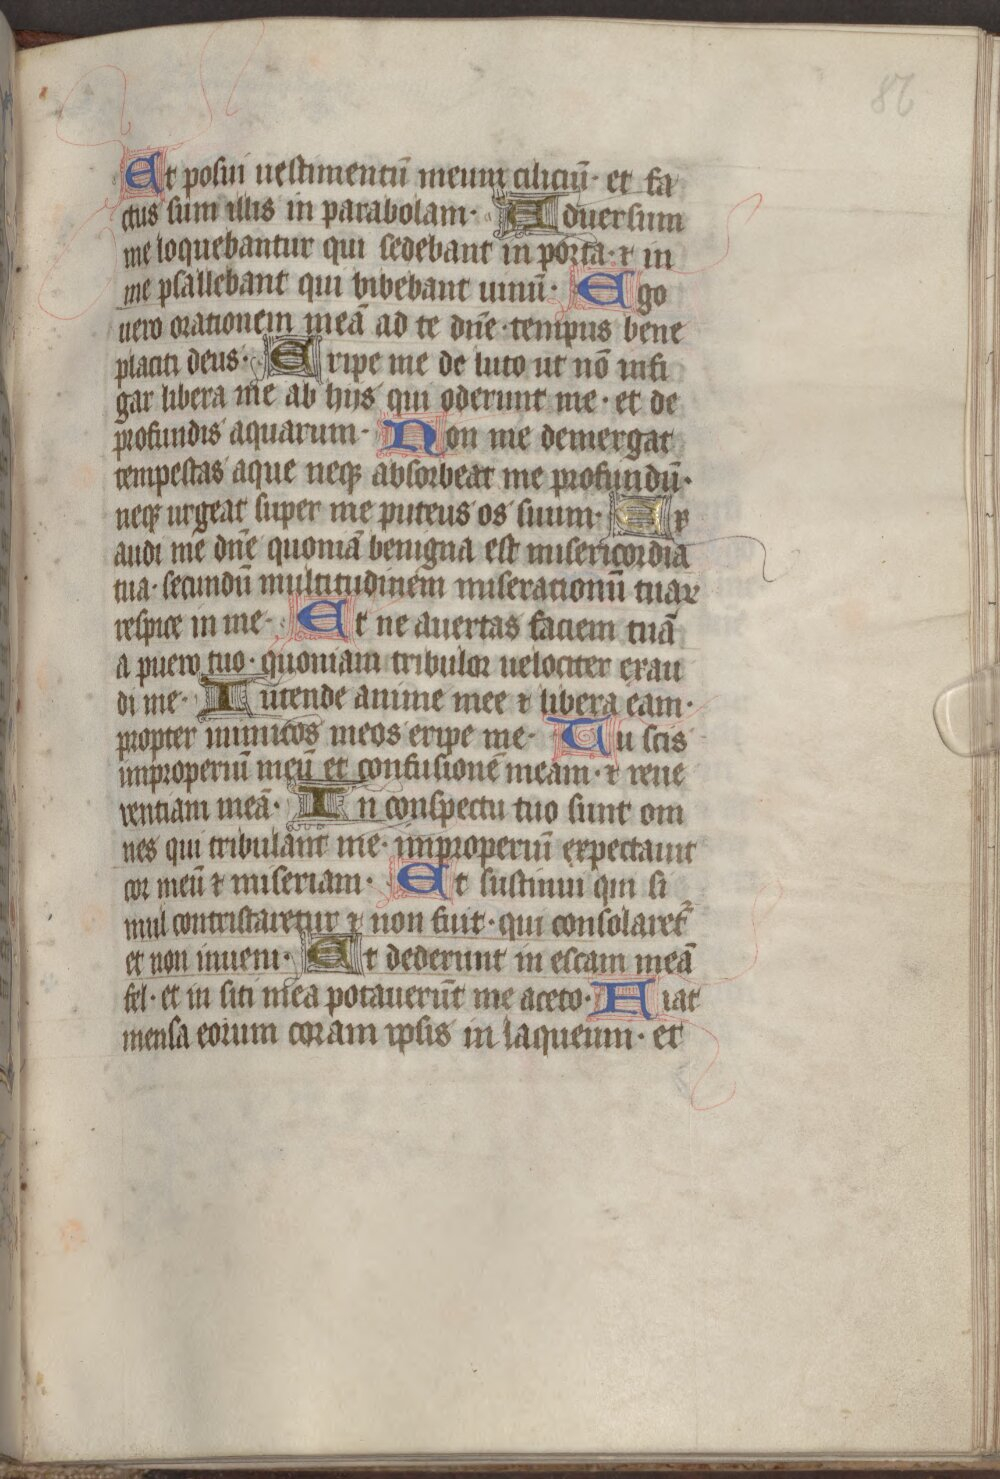 86
Et posui uestimentū meum ciliciū· et fa
ctus sum illis in parabolam· Aduersum
me loquebantur qui sedebant in porta· ⁊ in
me psallebant qui bibebant uinū· Ego
uero orationem meā ad te dn̄e· tempus bene
placiti deus· Eripe me de luto ut nō infi
gar libera me ab hijs qui oderunt me· et de
profundis aquarum· Non me demergat
tempestas aque neqꝫ absorbeat me profundū·
neqꝫ urgeat super me puteus os suum· Ex
audi me dn̄e quoniā benigna est misericordia
tua· secundū multitudinem miserationū tuaꝝ
respice in me· Et ne auertas faciem tuā
a puero tuo· quoniam tribulor uelociter exau
di me· Intende anime mee ⁊ libera eam·
propter inimicos meos eripe me· Tu scis
improperiū meū et confusionē meam· ⁊ reue
rentiam meā· In conspectu tuo sunt om
nes qui tribulant me· improperiū expectauit
cor meū ⁊ miseriam· Et sustinui qui si
mul contristaretur ⁊ non fuit· qui consolaret᷑
et non inueni· Et dederunt in escam meā
fel· et in siti mea potauerūt me aceto· Fiat
mensa eorum coram ipsis in laqueum· et